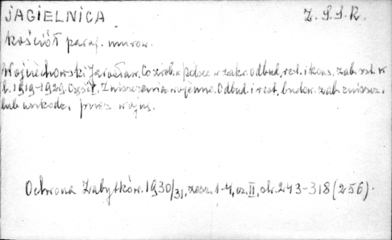 JAGIELNICA Z.S.S.R.
Kościół paraf. murow.
Wojciechowski Jarosław. Co zrob. w Polsce w zakr. odbud., rest. i kons. zab. szt. w
l. 1919-1929. Część I. Zniszczenia wojenne. Odbud. i rest. budow. zab. zniszcz.
lub uszkodz. przez wojnę.
Ochrona Zabytków. 1930/31, zesz. 1-4, cz. II, str. 243-318 (256).